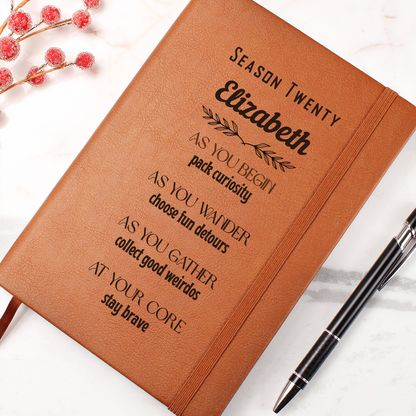 SEASON TWENTY
Elizabeth
AS YOU BEGIN
pack curiosity
AS YOU WANDER
choose fun detours
AS YOU GATHER
collect good weirdos
AT YOUR CORE
stay brave